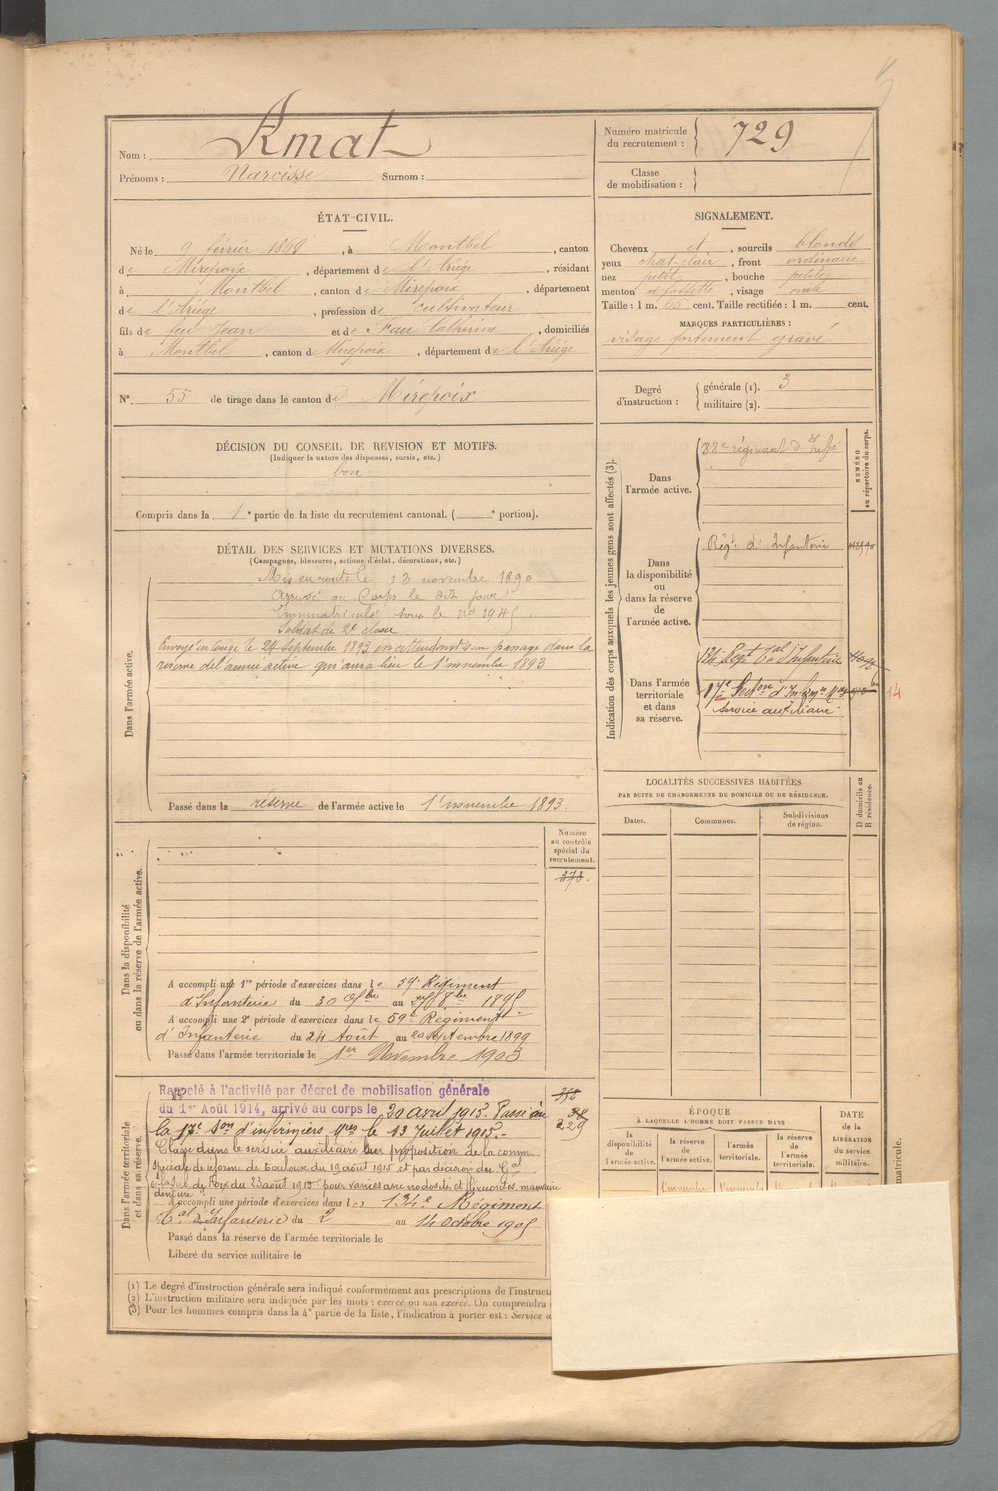 Nom : Amat
Prénoms : Narcisse Surnom :
Numéro matricule du recrutement : 729
Classe de mobilisation :
ÉTAT CIVIL.
Né le 9 février 1869, à Montbel, canton
de Mirepoix, département de l'Ariège, résidant
à Montbel, canton de Mirepoix, département
de l'Ariège, profession de cultivateur
fils de feu Jean et de Fau Catherine, domiciliés
à Montbel, canton de Mirepoix, département de l'Ariège
SIGNALEMENT.
Cheveux et, sourcils blonds
yeux chat. clair, front ordinaire
nez petit, bouche petite
menton à fossette, visage ovale
Taille : 1 m. 65 cent. Taille rectifiée : 1 m. cent.
MARQUES PARTICULIÈRES :
visage fortement gravé
N° 55 de tirage dans le canton de Mirepoix
Degré d'instruction : générale (1). 3
militaire (2).
DÉCISION DU CONSEIL DE REVISION ET MOTIFS.
(Indiquer la nature des dispenses, sursis, etc.)
bon
Compris dans la 1e partie de la liste du recrutement cantonal. ( e portion).
DÉTAIL DES SERVICES ET MUTATIONS DIVERSES.
(Campagnes, blessures, actions d'éclat, décorations, etc.)
Dans l'armée active.
Mis en route le 13 novembre 1890
Arrivé au Corps le dit jour
Immatriculé sous le no
Soldat de 2e classe
Envoyé en congé le 24 septembre 1893 en attendant son passage dans la
réserve de l'armée active qui aura lieu le 1er novembre 1893
Passé dans la réserve de l'armée active le 1er novembre 1893.
Indication des corps auxquels les jeunes gens sont affectés (3).
NUMÉRO au répertoire du corps.
Dans l'armée active.
88e régiment d'Infie
Dans la disponibilité ou dans la réserve de l'armée active.
Régt d'Infanterie
Dans l'armée territoriale et dans sa réserve.
134 Regt Tal d'Infanterie
17e Section d'Infirmiers Mres
Service auxiliaire
14
LOCALITÉS SUCCESSIVES HABITÉES
PAR SUITE DE CHANGEMENTS DE DOMICILE OU DE RÉSIDENCE.
Dates. Communes. Subdivisions de région.
D domicile ou R résidence.
Dans la disponibilité ou dans la réserve de l'armée active.
Numéro au contrôle spécial du recrutement.
373.
A accompli une 1re période d'exercices dans le 59e Régiment
d'Infanterie du 30 au 1895
A accompli une 2e période d'exercices dans le 59e Régiment
d'Infanterie du 24 Août au 20 septembre 1899
Passé dans l'armée territoriale le 1er Novembre 1903
Dans l'armée territoriale et dans sa réserve.
Rappelé à l'activité par décret de mobilisation générale
du 1er Août 1914, arrivé au corps le 30 avril 1915. Passé à
la 17e Son d'infirmiers Mres le 13 Juillet 1915.-
Classé dans le service auxiliaire sur proposition de la comm.
spéciale de réforme de Toulouse du 19 août 1915 et par décision du Gal
du 23 août 1915 "pour varices avec nodosité et flexuosités, mauvaise
denture".
229
A accompli une période d'exercices dans le 134e Régiment
Tal d'Infanterie du 2 au 14 octobre 1905
Passé dans la réserve de l'armée territoriale le
Libéré du service militaire le
ÉPOQUE
À LAQUELLE L'HOMME DOIT PASSER DANS
la disponibilité de l'armée active.
la réserve de l'armée active.
l'armée territoriale.
la réserve de l'armée territoriale.
DATE de la LIBÉRATION du service militaire.
matricule.
(1) Le degré d'instruction générale sera indiqué conformément aux prescriptions de l'instruct
(2) L'instruction militaire sera indiquée par les mots : exercé ou non exercé. On comprendra
(3) Pour les hommes compris dans la 4e partie de la liste, l'indication à porter est : Service a